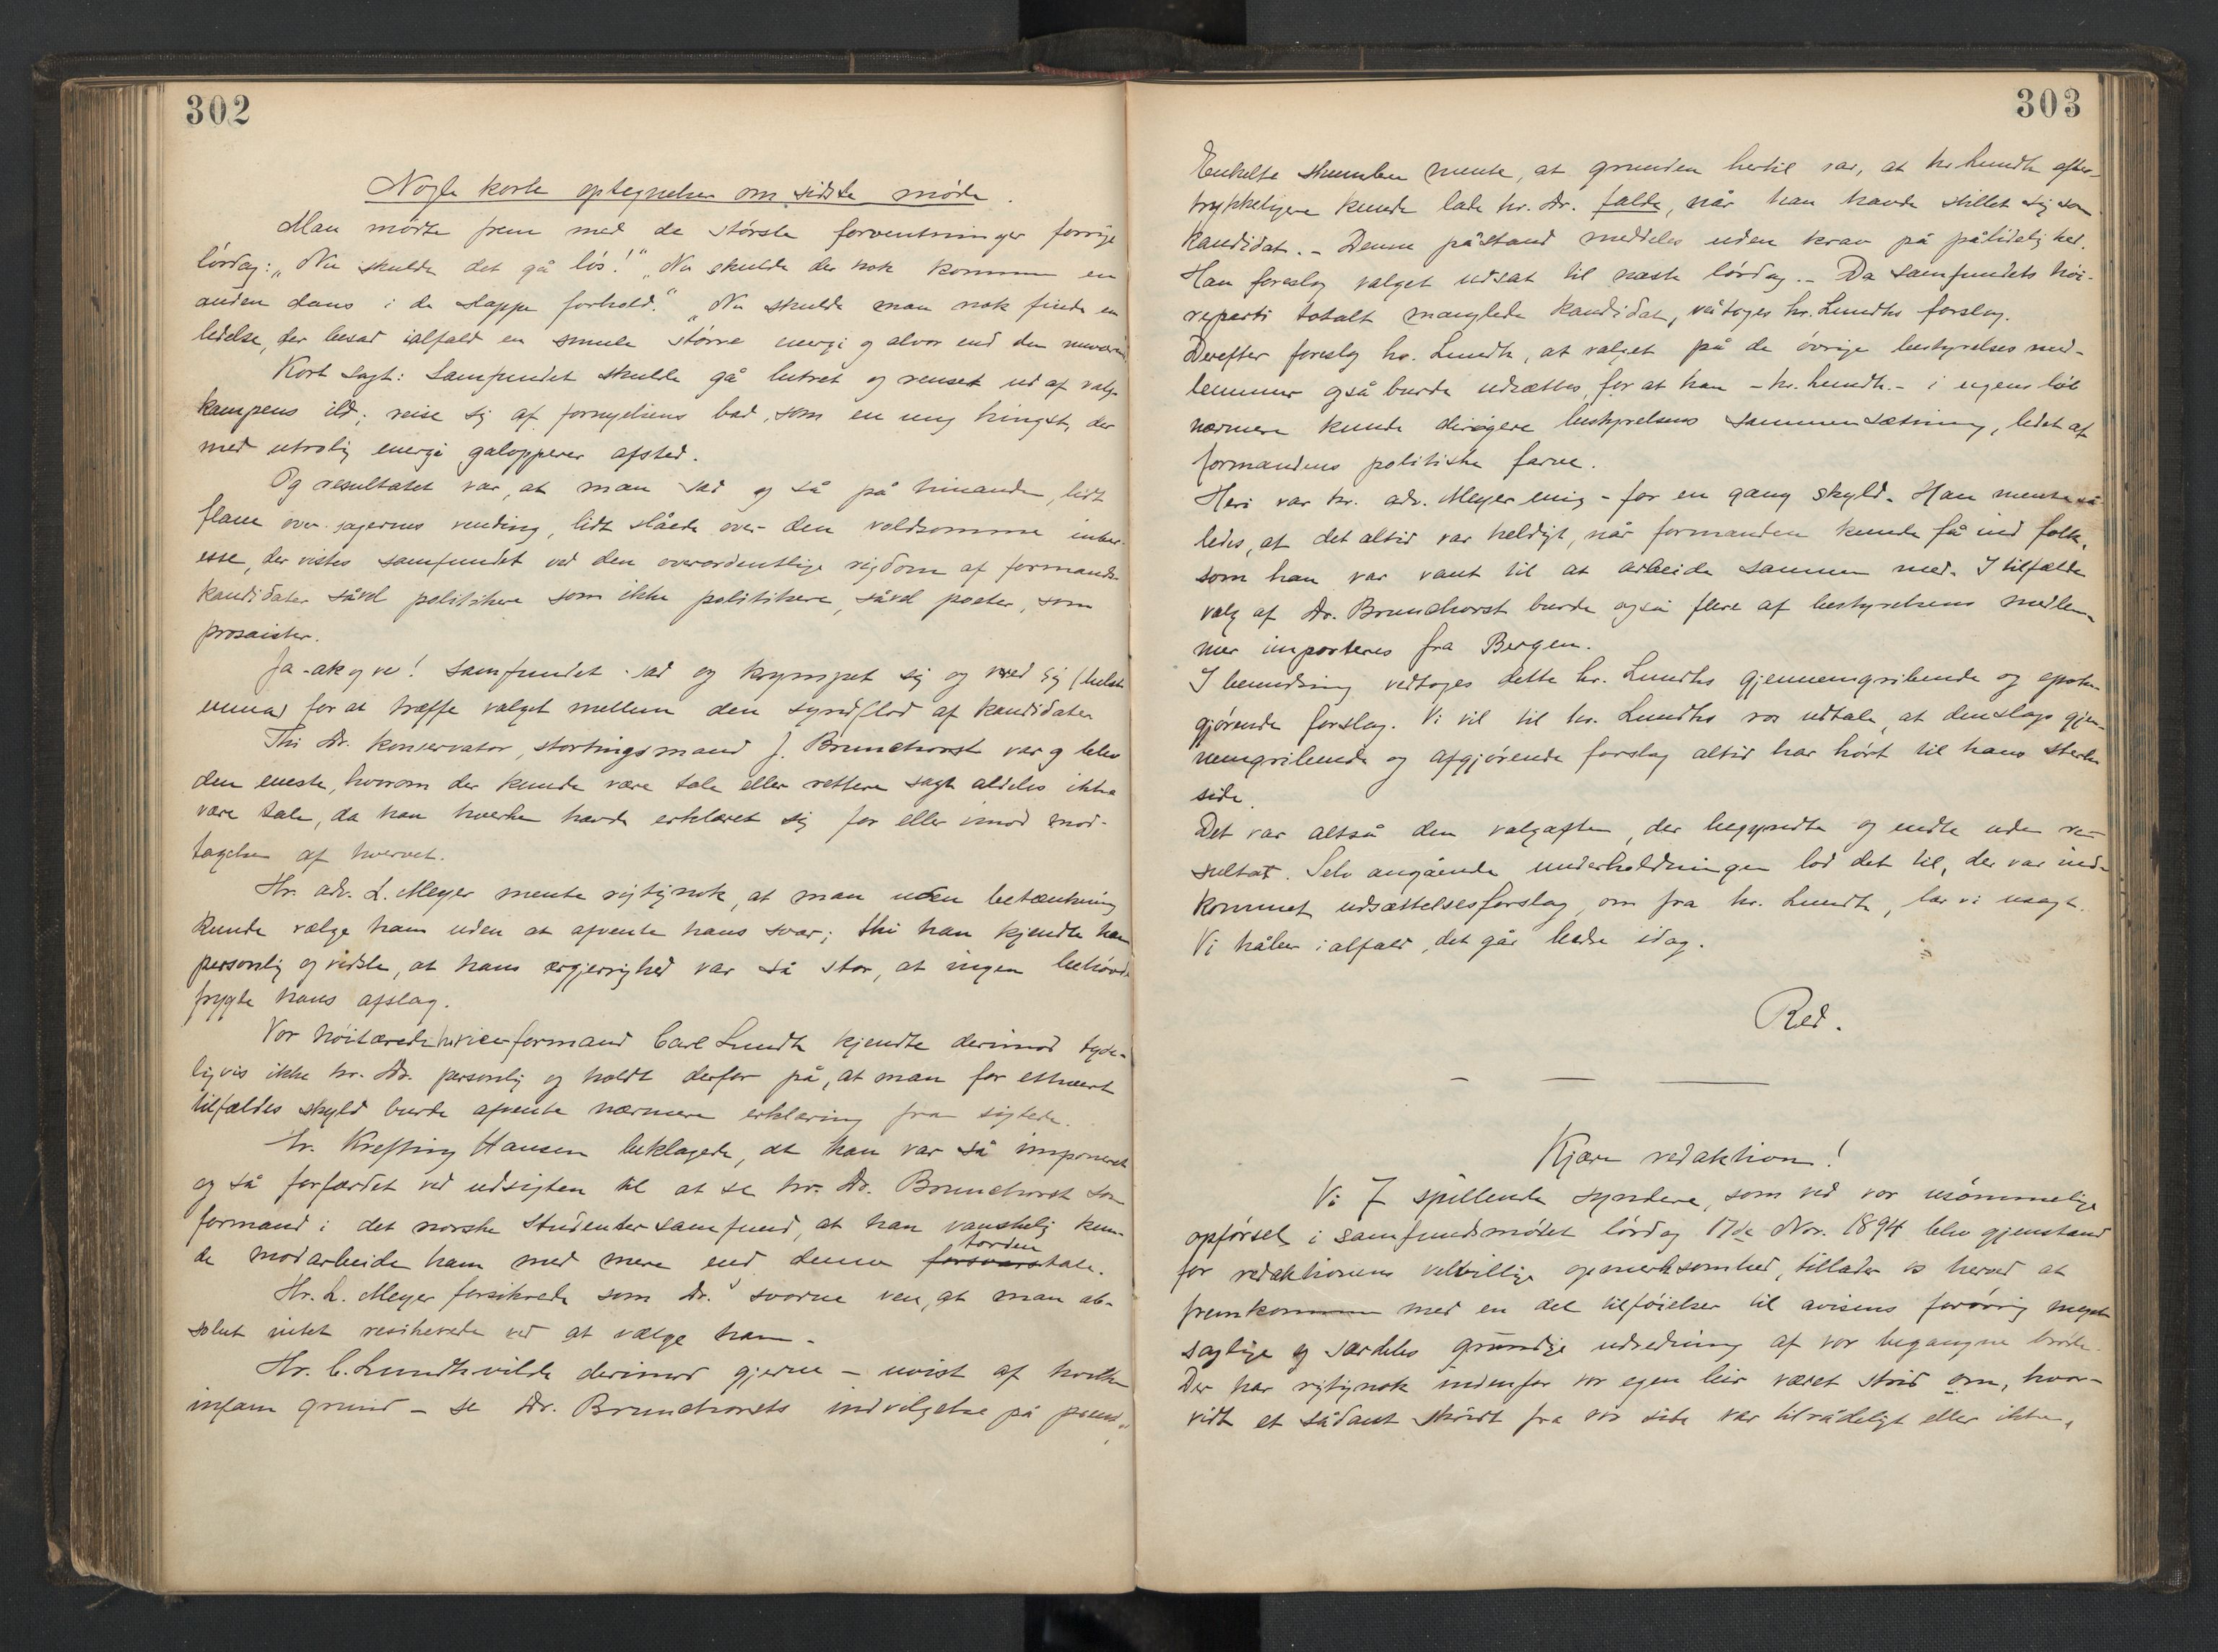 302
Nogle korte optegnelser om sidste møde.
Man mødte frem med de største forventninger forrige
lørdag: „Nu skulde det gå løs!" „Nu skulde der nok komme en
anden dans i de slappe forhold." „Nu skulde man nok finde en
ledelse, der besad ialfald en smule større energi og alvor end den nuværen
Kort sagt: Samfundet skulde gå lutret og renset ud af valg-
kampens ild; reise sig af fornyelsens bad, som en ung hingst, der
med utrolig energi galopperer afsted.
Og resultatet var, at man sad og så på hinanden, lidt
flaue over sagernes vending, lidt slåede over den voldsomme inter-
esse, der vistes samfundet ved den overordentlige rigdom af formands-
kandidater såvel politikere som ikke politikere, såvel poeter, som
prosaister.
Ja - ak og ve! Samfundet sad og krympet sig og vred sig (helst
unna) for at træffe valget mellem den syndflod af kandidater
Thi dr. konservator, stortingsmand J. Brunchorst var og blev
den eneste, hvorom der kunde være tale eller rettere sagt aldeles ikke
være tale, da han hverken havde erklæret sig for eller imod mod-
tagelsen af hvervet.
Hr. adv. L. Meyer mente rigtignok, at man uden betænkning
kunde vælge ham uden at afvente hans svar; thi han kjendte ham
personlig og vidste, at hans ærgjerrighed var så stor, at ingen behøvde
frygte hans afslag.
Vor høitærede hr viceformand Carl Lundh kjendte derimod tyde-
ligvis ikke hr. dr. personlig og holdt derfor på, at man for ethvert
tilfældes skyld burde afvente nærmere erklæring fra sigtede.
Hr. Krefting Hansen beklagede, at han var så imponeret
og så forfærdet ved udsigten til at se hr. dr. Brunchorst som
formand i det norske Studentersamfund, at han vanskelig kun-
de modarbeide ham med mere end denne forsvars torden tale.
Hr. L. Meyer forsikrede som dr.s svorne ven, at man ab-
solut intet resikerede ved at vælge ham.
Hr. C. Lundh vilde derimod gjerne - uvist af hvilken
infam grund - se dr. Brunchorsts indvilgelse på prent
303
Enkelte skumler mente, at grunden hertil var, at hr. Lundh efter-
trykkeligere kunde lade hr. dr. falde, når han havde stillet sig som
kandidat. - Denne påstand meddeles uden krav på pålidelighed.
Han foreslog valget udsat til næste lørdag. - Da samfundets høi-
reparti totalt manglede kandidat, vedtoges hr. Lundhs forslag.
Derefter foreslog hr. Lundh, at valget på de øvrige bestyrelsesmed-
lemmer også burde udsættes, for at han - hr. Lundh - i ugens løb
nærmere kunde dirigere bestyrelsens sammensætning, ledet af
formandens politiske farve.
Heri var hr. adv. Meyer enig - for en gang skyld. Han mente så-
ledes, at det altid var heldigt, når formanden kunde få ind folk,
som han var vant til at arbeide sammen med. I tilfælde
valg af dr. Brunchorst burde også flere af bestyrelsens medlem-
mer importeres fra Bergen.
I beundring vedtoges dette hr. Lundhs gjennemgribende og epoke-
gjørende forslag. Vi vil til hr. Lundhs ros udtale, at denslags gjen-
nemgribende og afgjørende forslag altid har hørt til hans sterke
side.
Det var altså den valgaften, der begyndte og endte uden re-
sultat. Selv angående underholdningen lod det til, der var ind-
kommet udsættelsesforslag, om fra hr. Lundh, lar vi usagt.
Vi håber ialfald, det går bedre idag.
Red.
Kjære redaktion!
Vi 7 spillende syndere, som ved vor usømmelige
opførsel i samfundsmødet lørdag 17de Nov. 1894 blev gjenstand
for redaktionens velvillige opmerksomhed, tillader os herved at
fremkomme med en del tilføielser til avisens forøvrig meget
saglige og særdeles grundige udredning af vor begangne brøde.
Der har rigtignok indenfor vor egen leir været strid om, hvor-
vidt et sådant skridt fra vor side var tilrådeligt eller ikke,